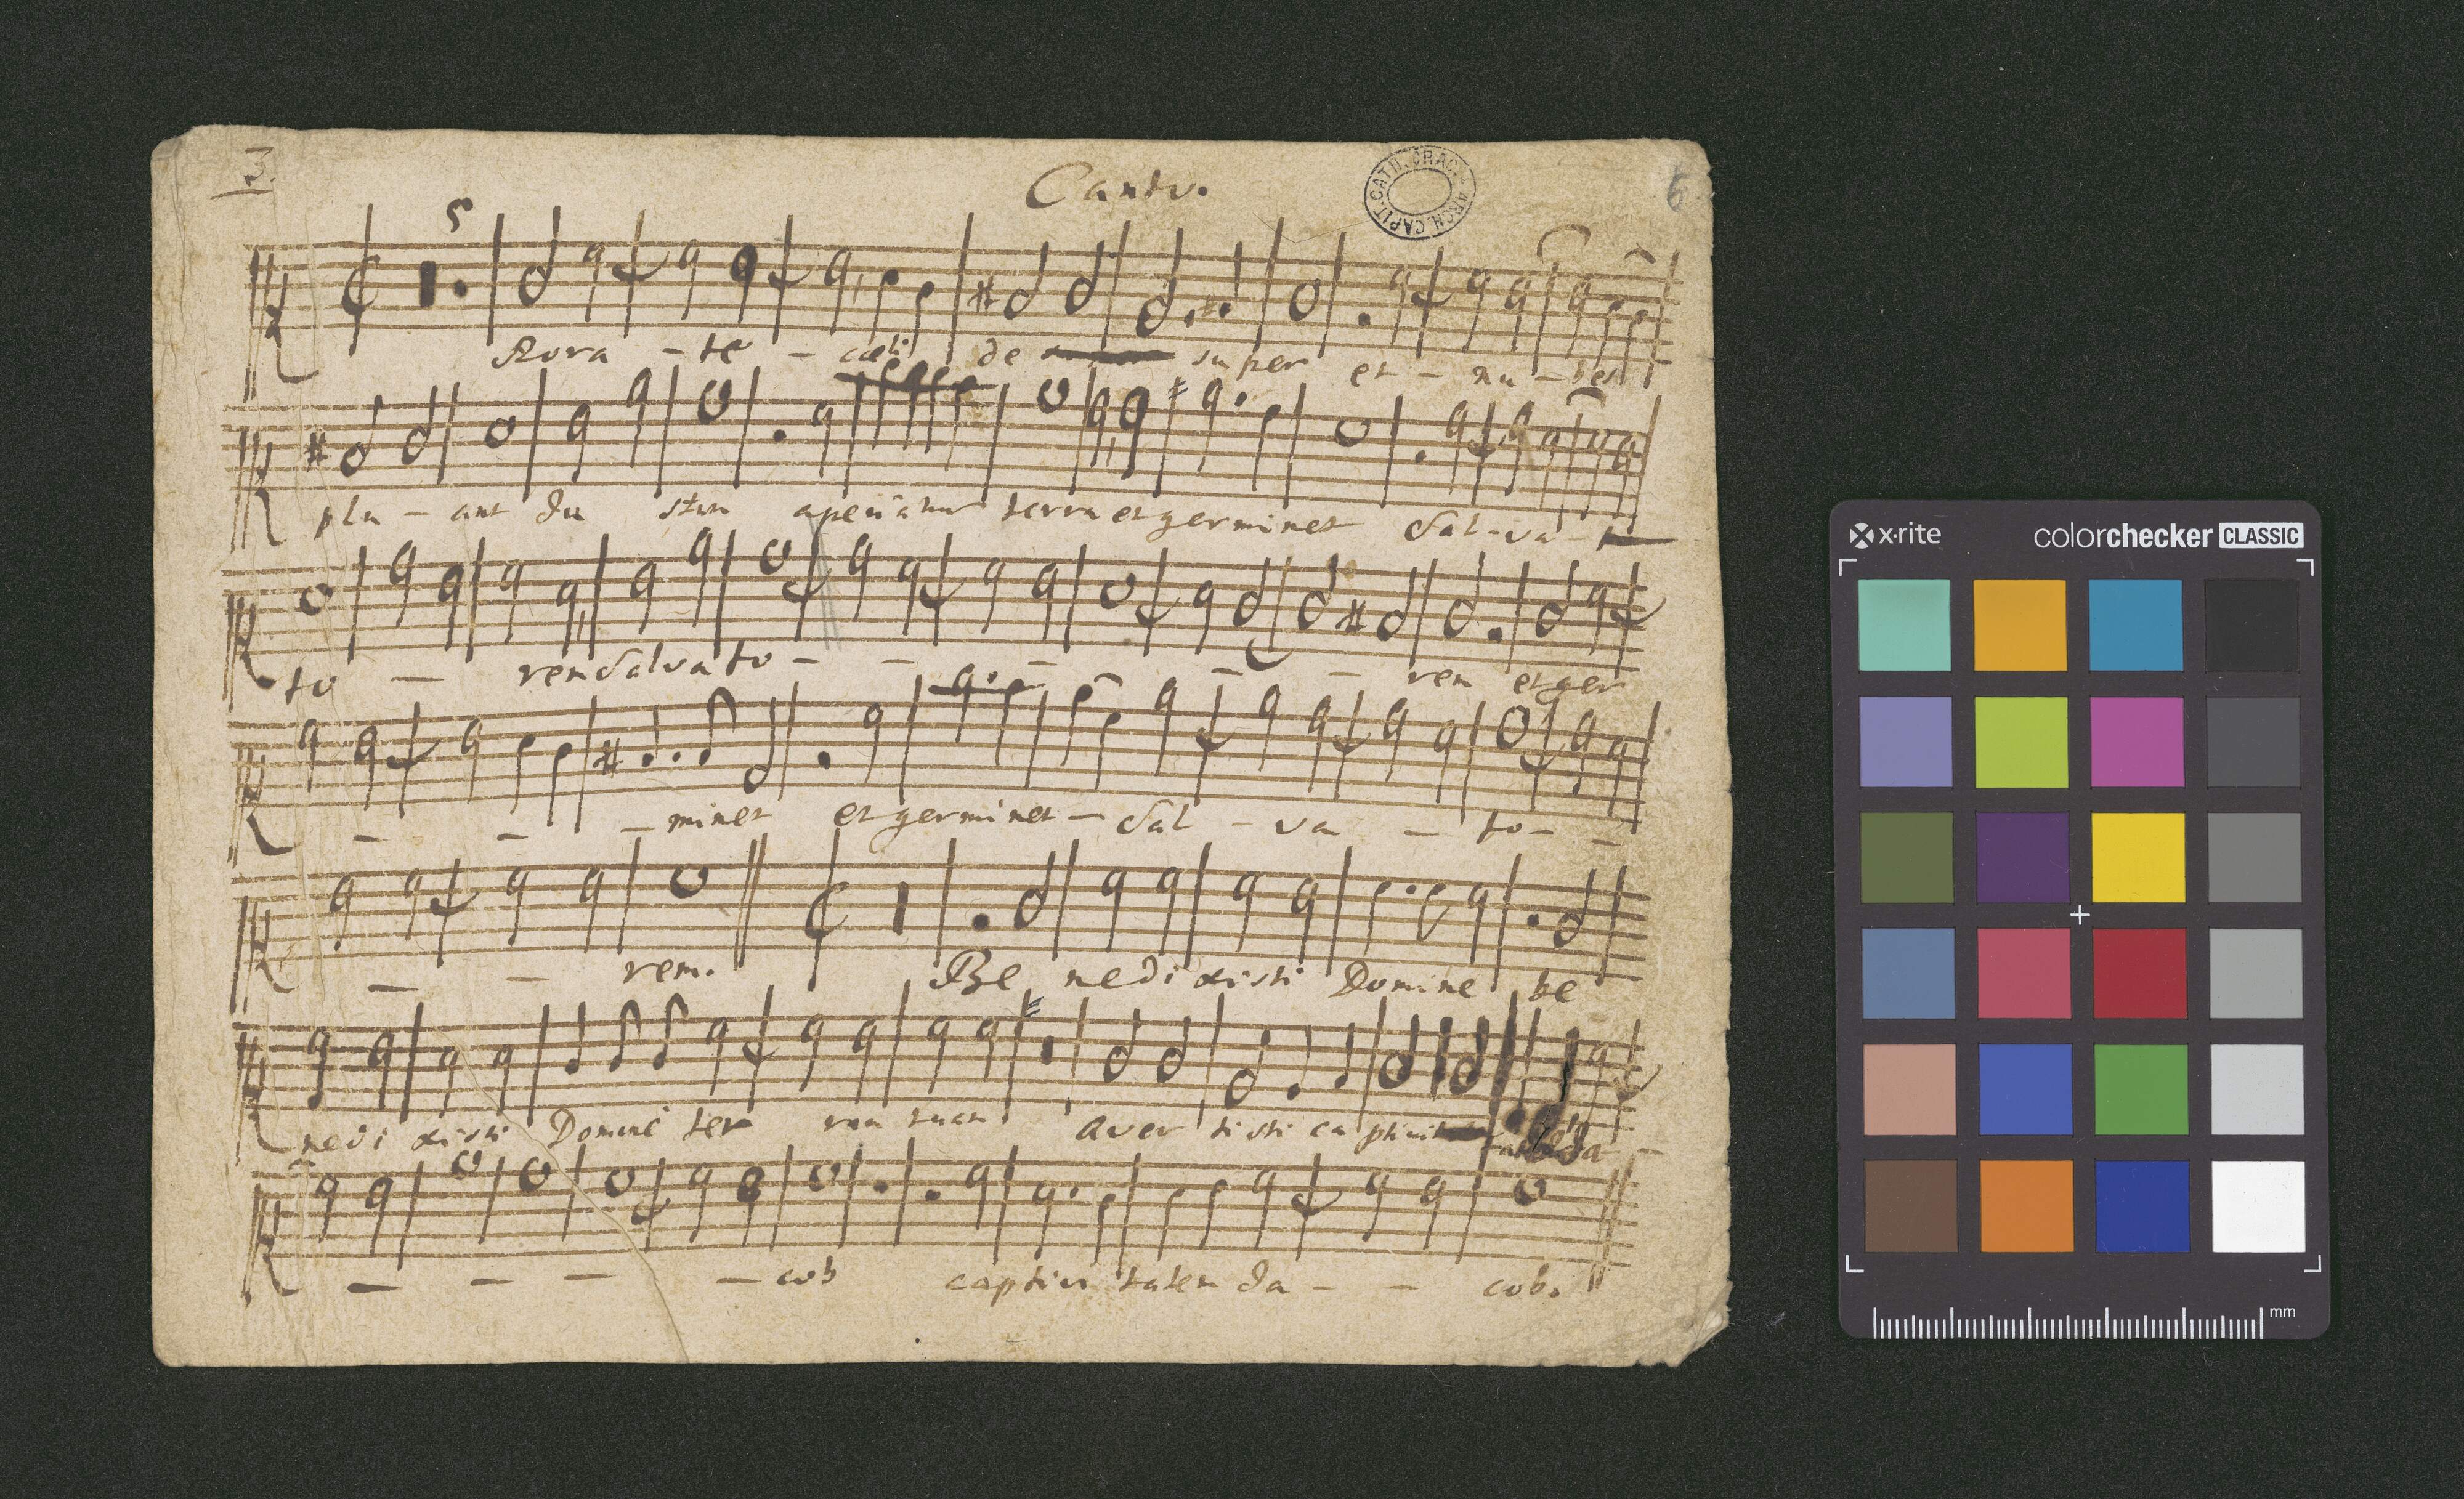 3.
Canto.
ARCH. CAPIT. CATH. CRAC.
6
5
Rora - te - cœli de super et - nu - bes
plu - ant Ju stum aperiatur terra et germinet Sal - va -
to - rem Salvato - - - - - rem et ger
- - - minet et germinet - Sal - va - to - -
- - rem. Be nedi xisti Domine be
nedi xisti Domine ter ram tuam Aver tisti ca ptivi Ja -
- - - - cob captivi tatem Ja - - cob.
x-rite colorchecker CLASSIC
mm